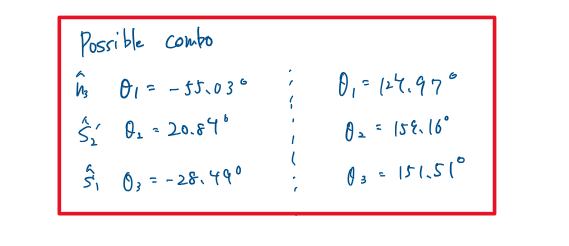 Possible combo
n̂₃ θ₁ = -55.03° θ₁ = 124.97°
ŝ₂' θ₂ = 20.84° θ₂ = 159.16°
ŝ₁ θ₃ = -28.49° θ₃ = 151.51°